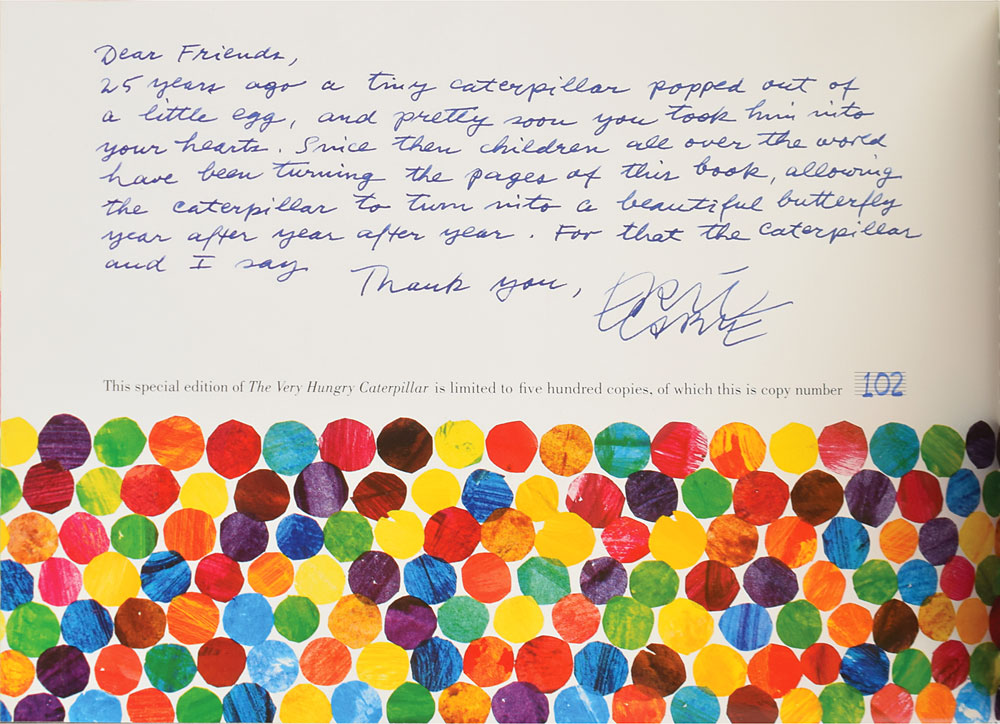 Dear Friends,
25 years ago a tiny caterpillar popped out of
a little egg, and pretty soon you took him into
your hearts. Since then children all over the world
have been turning the pages of this book, allowing
the caterpillar to turn into a beautiful butterfly
year after year after year. For that the caterpillar
and I say
Thank you,
ERIC
CARLE
This special edition of The Very Hungry Caterpillar is limited to five hundred copies, of which this is copy number 102